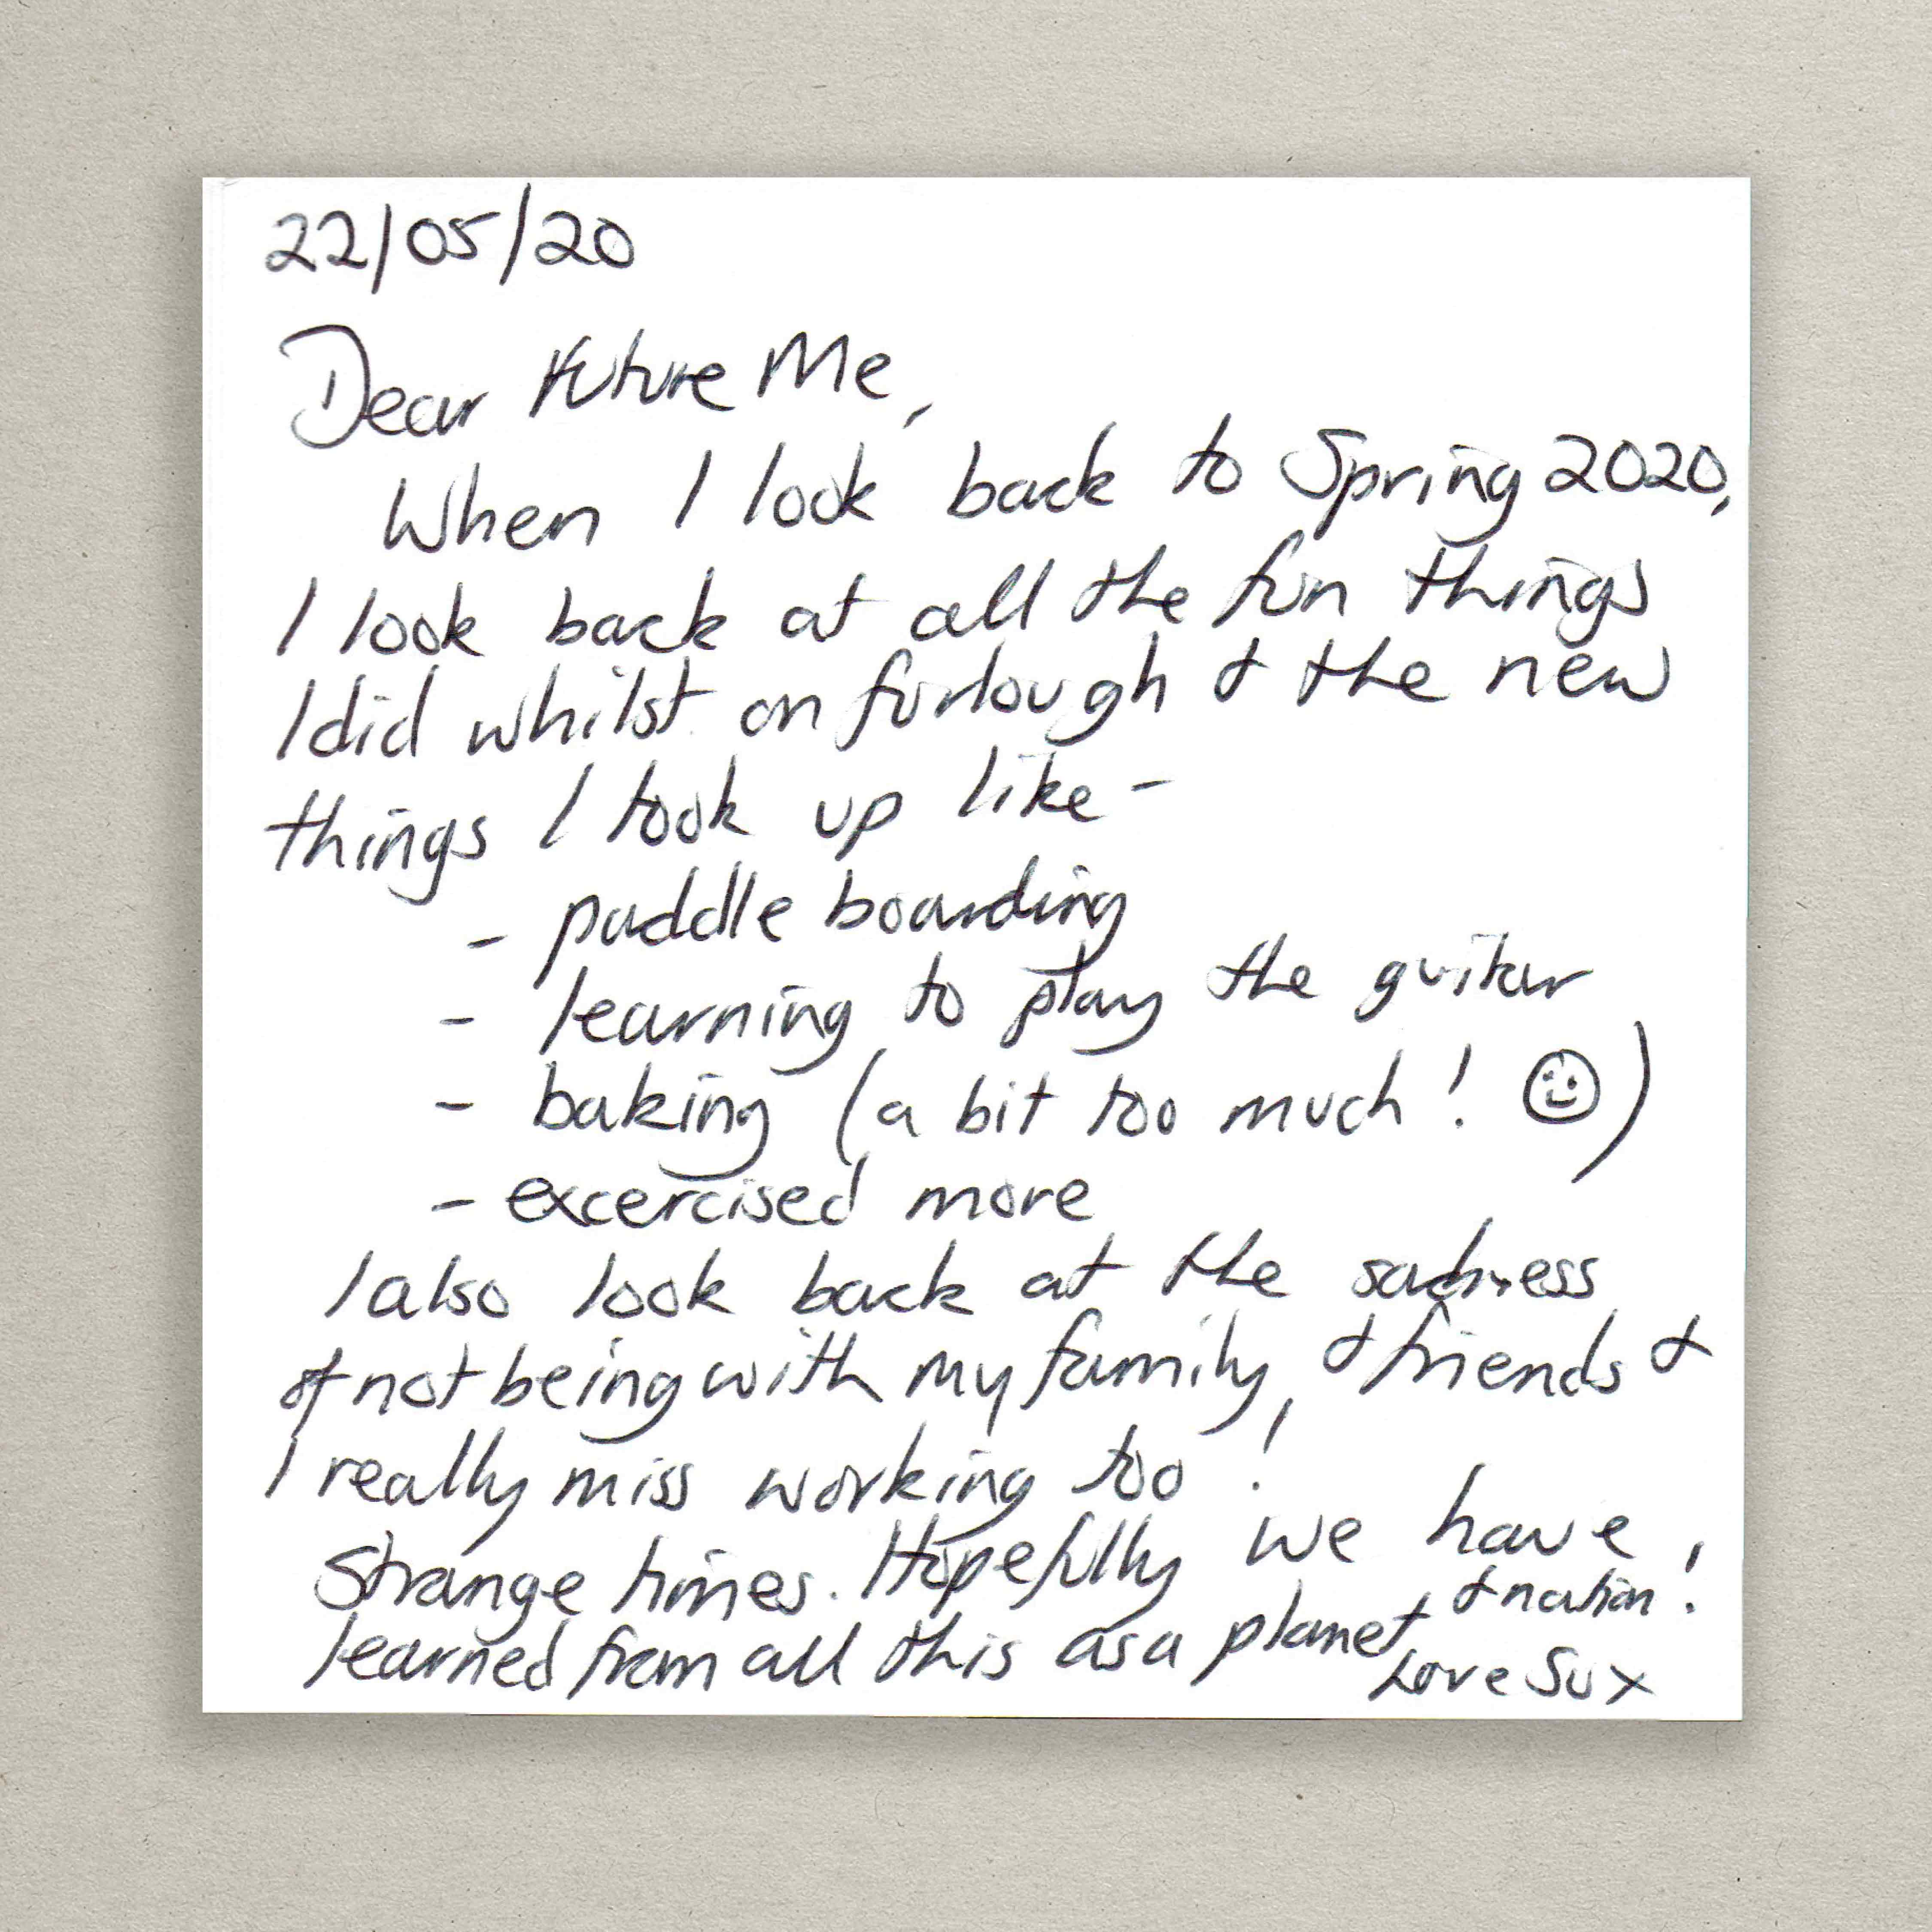 22/05/20
Dear Future Me,
When I look back to Spring 2020,
I look back at all the fun things
I did whilst on furlough & the new
things I took up like -
- paddle boarding
- learning to play the guitar
- baking (a bit too much! ☺)
- excercised more
I also look back at the sadness
of not being with my family, & friends &
I really miss working too!
Strange times. Hopefully we have
learned from all this as a planet & nation!
Love Su x